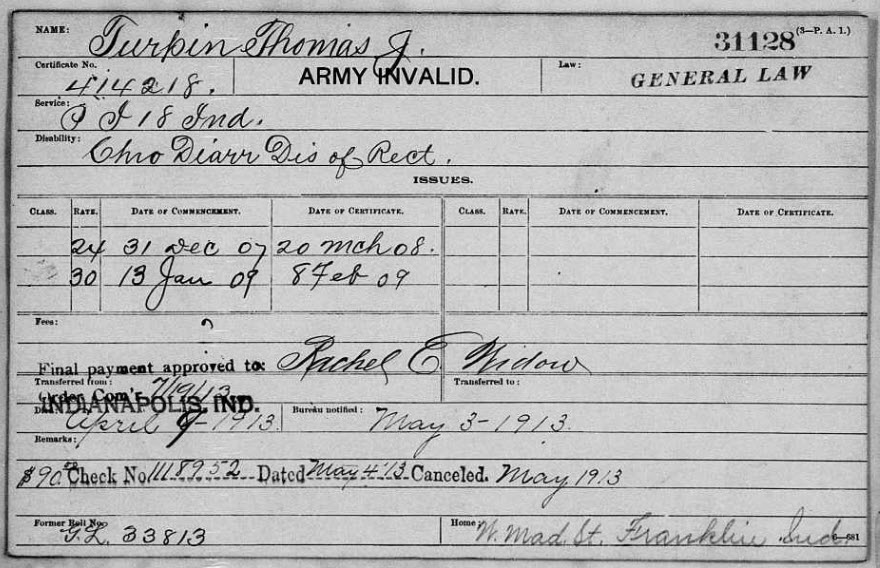 NAME: Turpin Thomas J. 31128 (3—P. A. 1.)
Certificate No. 414218. ARMY INVALID. Law: GENERAL LAW
Service: I 18 Ind.
Disability: Chro Diarr Dis of Rect.
ISSUES.
CLASS. RATE. DATE OF COMMENCEMENT. DATE OF CERTIFICATE. CLASS. RATE. DATE OF COMMENCEMENT. DATE OF CERTIFICATE.
24 31 Dec 07 20 mch 08.
30 13 Jan 09 8 Feb 09
Fees:
Final payment approved to: Rachel E Widow
Transferred from: Transferred to:
Order Com'r 7/19/13
INDIANAPOLIS, IND.
April 9-1913 Bureau notified: May 3-1913.
Remarks:
$90 00 Check No 1118952 Dated May 4 '13 Canceled. May 1913
Former Roll No. G.L. 33813 Home: W. Mad. St. Franklin Ind.
6—681